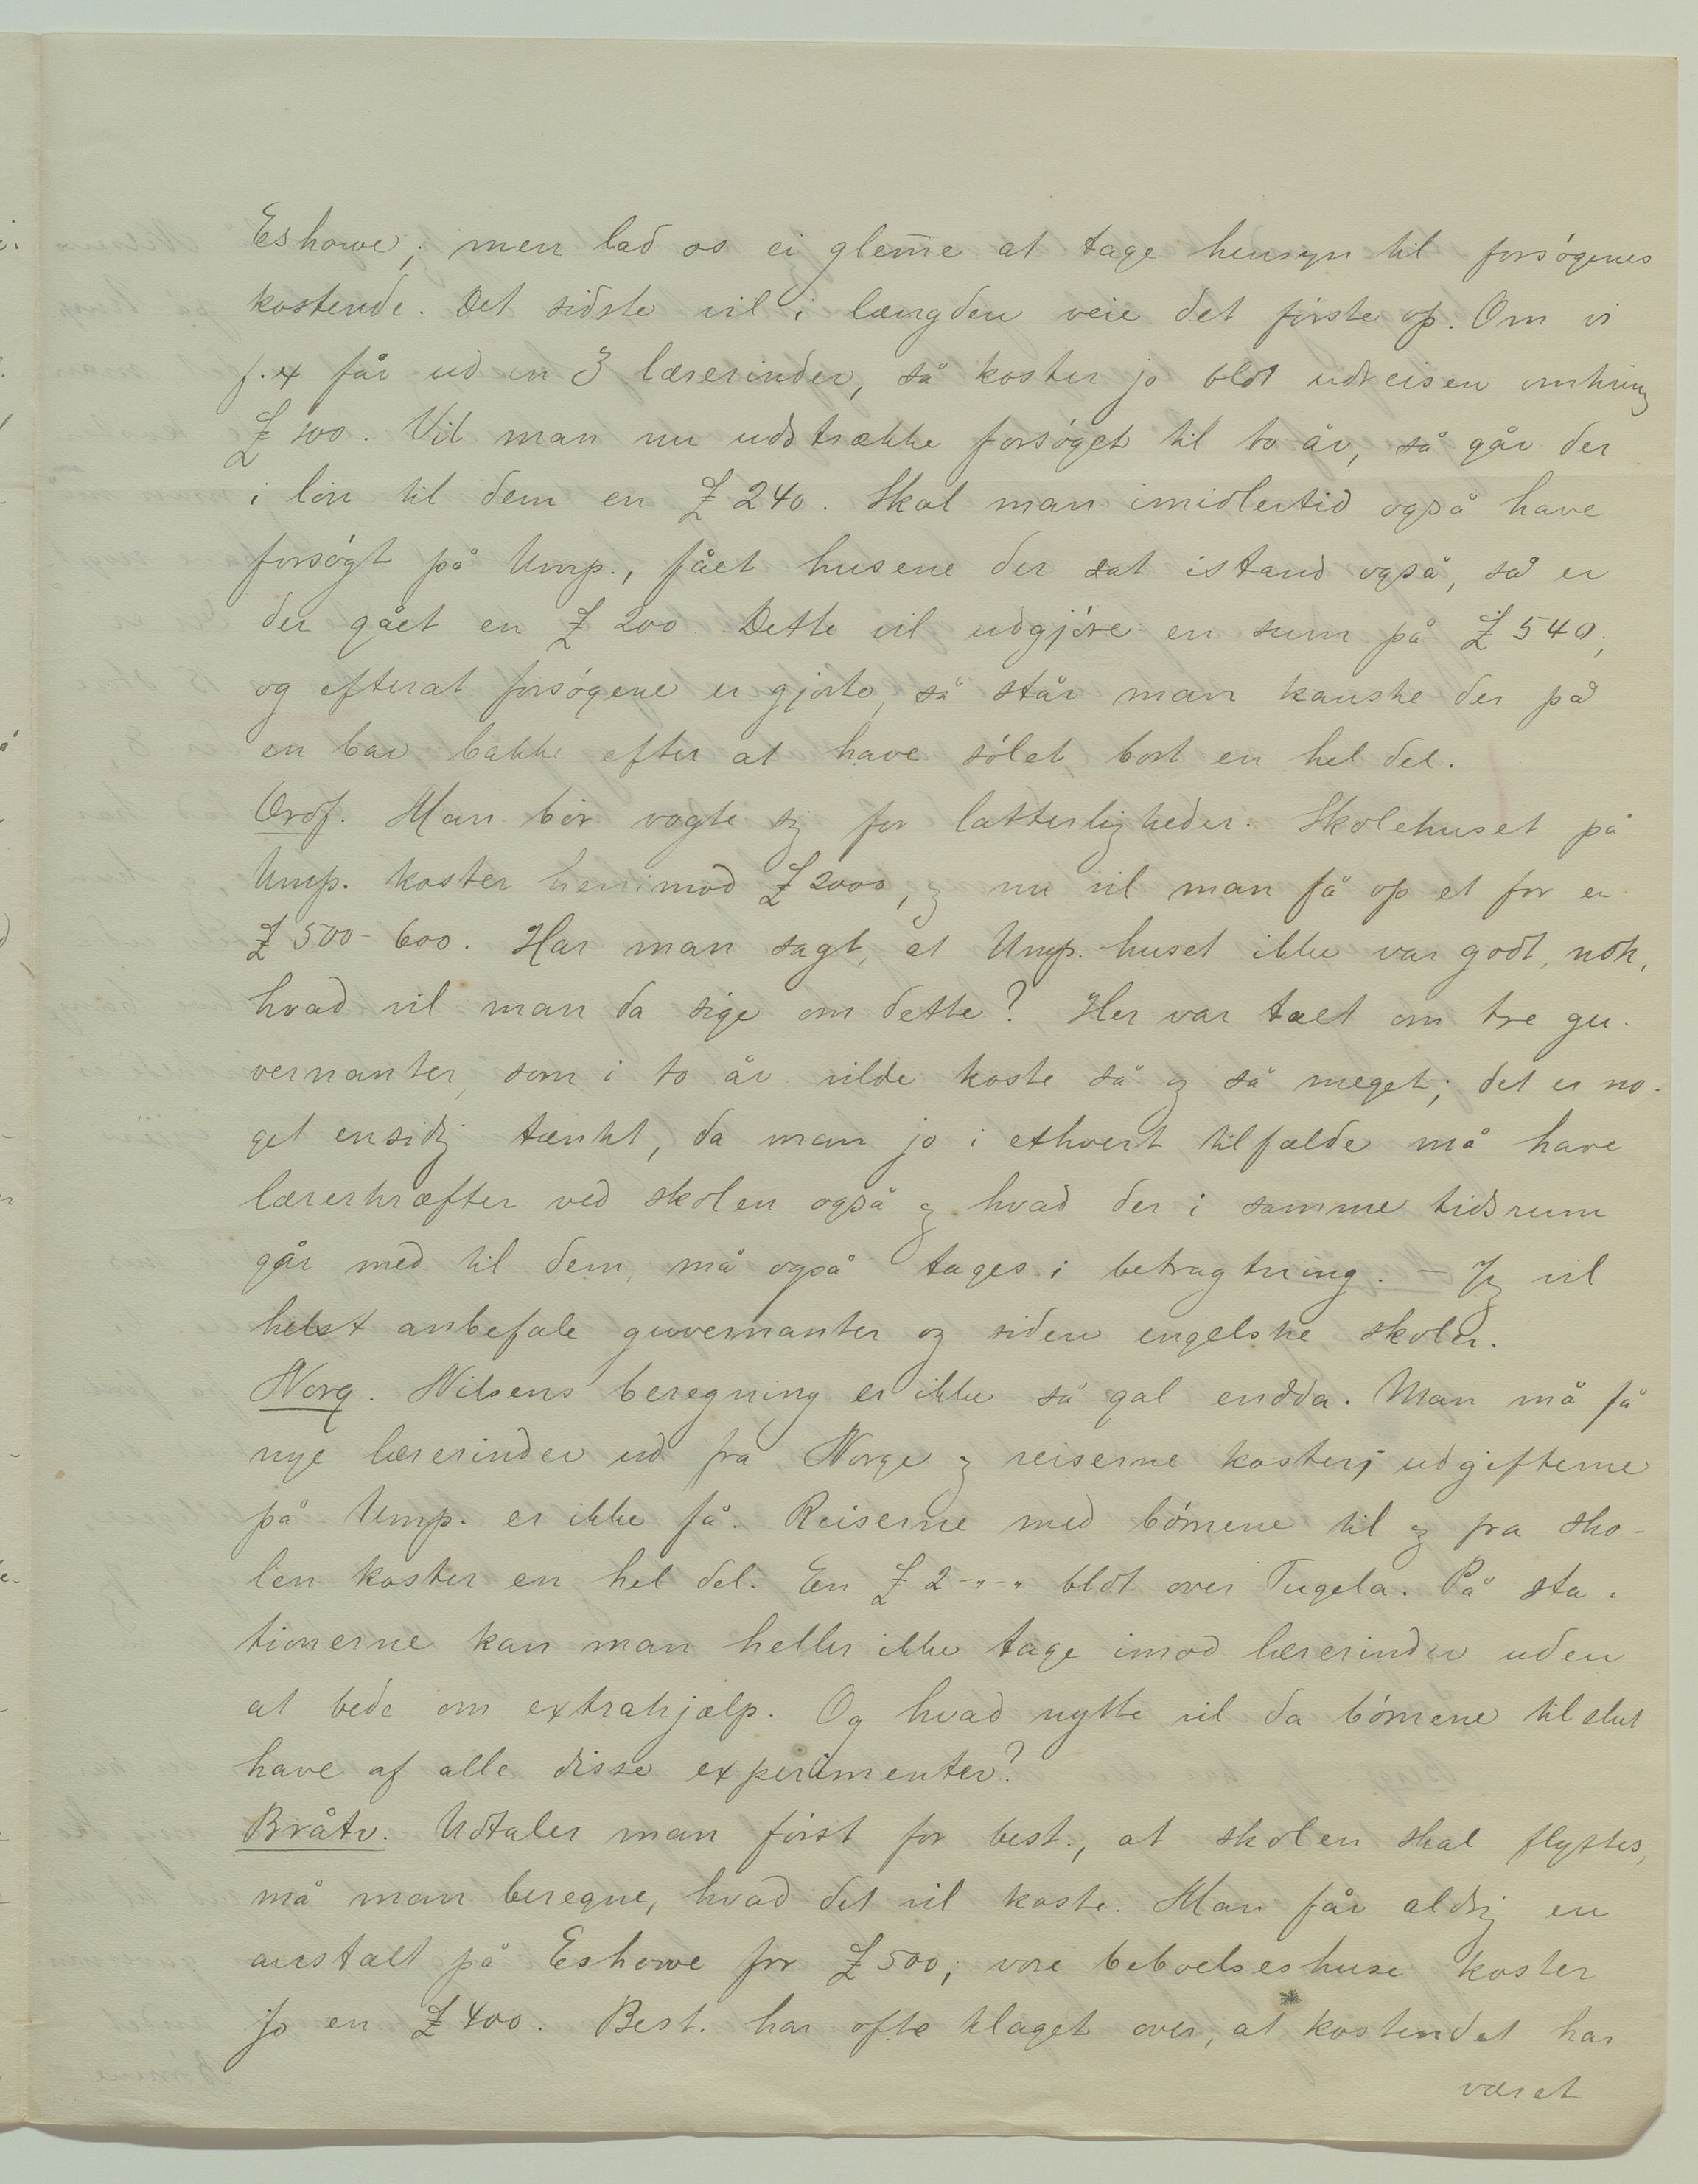 Eshowe; men lad os ei glem̄e at tage hensyn til forsøgenes
kostende. Det sidste vil i længden veie det første op. Om vi
f.ex får ud en 3 lærerinder, så koster jo blot udreisen omkring
£ 100. Vil man nu udstrække forsøget til to år, så går der
i løn til dem en £ 240. Skal man imidlertid også have
forsøgt på Ump., fået husene der sat istand også, så er
der gået en £ 200. Dette vil udgjøre en sum på £ 540,
og efterat forsøgene er gjorte, så står man kanske der på
en bar bakke efter at have sølet bort en hel del.
Ordf. Man bør vogte sig for latterligheder. Skolehuset på
Ump. koster henimod £ 2000, og nu vil man få op et for en
£ 500-600. Har man sagt, at Ump.-huset ikke var godt nok,
hvad vil man da sige om dette? Her var talt om tre gu-
vernanter, som i to år vilde koste så og så meget; det er no-
get ensidig tænkt, da man jo i ethvert tilfælde må have
lærerkræfter ved skolen også og hvad der i samme tidsrum
går med til dem, må også tages i betragtning. – Jeg vil
helst anbefale guvernanter og siden engelske skoler.
Norg. Nilsens beregning er ikke så gal endda. Man må få
nye lærerinder ud fra Norge og reiserne koster; udgifterne
på Ump. er ikke få. Reiserne med børnene til og fra sko-
len koster en hel del. En £ 2-"-" blot over Tugela. På sta-
tionerne kan man heller ikke tage imod lærerinder uden
at bede om extrahjælp. Og hvad nytte vil da børnene tilslut
have af alle disse experimenter?
Bråtv. Udtaler man først for best., at skolen skal flyttes,
må man beregne, hvad det vil koste. Man får aldrig en
anstalt på Eshowe for £ 500; vore beboelseshuse koster
jo en £ 400. Best. har ofte klaget over, at kostendet har
været